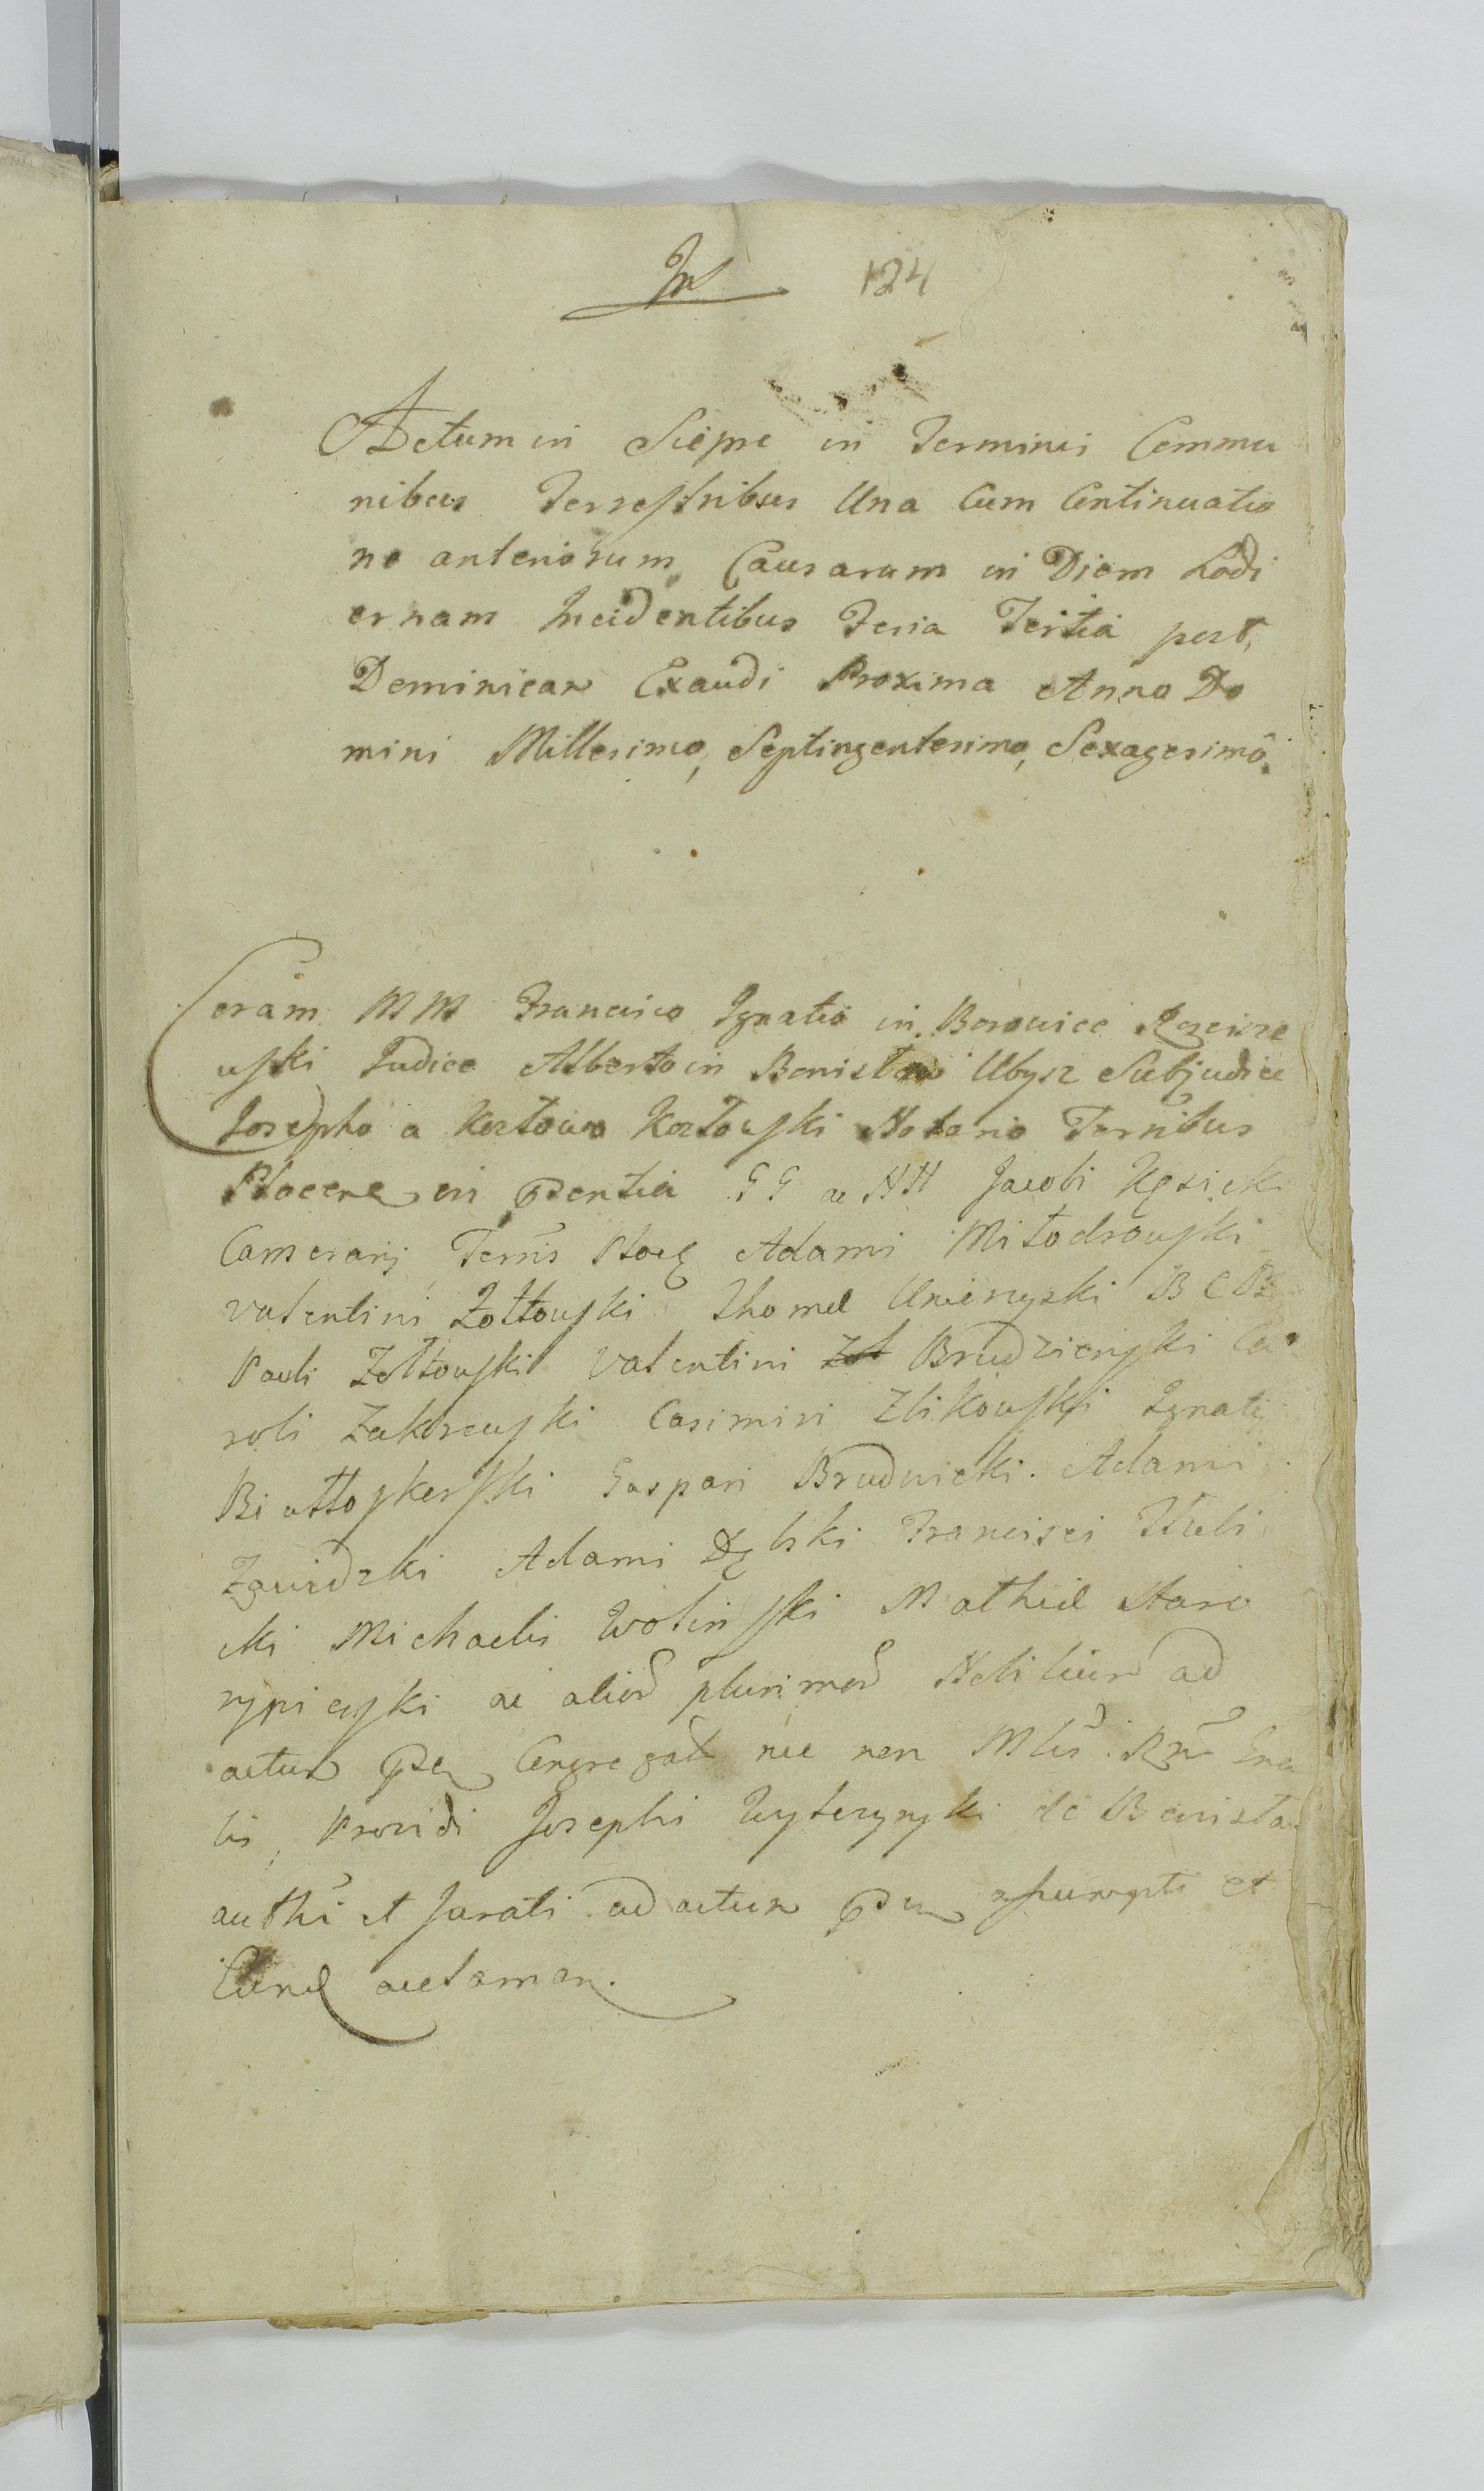 124
Actum in Siepre in Terminis Commu
nibus Terrestribus Una Cum Continuatio
ne anteriorum Causarum in Diem hodi
ernam Incidentibus Feria Tertia post
Dominicam Exaudi Proxima Anno Do
mini Millesimo, Septingentesimo, Sexagesimô.
Coram MM Francisco Ignatio in Borowice
uski Judice Alberto in Bonisław Ubysz Subjudice
Josepho a Kozłowo Kozłowski Notario Terribus
Plocen in GG ac NN Jacobi Kęsicki
Camerarij Terris Ploc Adami Miłodrowski
Valentini Żółtowski Thomae Unierzyski
Pauli Żółtowski Valentini Brudzienski Ca
roli Zakrzewski Casimiri Zlikowski Ignatij
Białłoskurski Gaspari Brudnicki. Adami
Zawidzki Adami Dębski Francisci
cki Michaelis Woliński Mathiae Staro
rypiński ac alior plurimor Nobilium ad
actum Congregat nec non
lis, Providi Josephi de Bonisław
auth et Jurati ad actum assumpti et
claman.